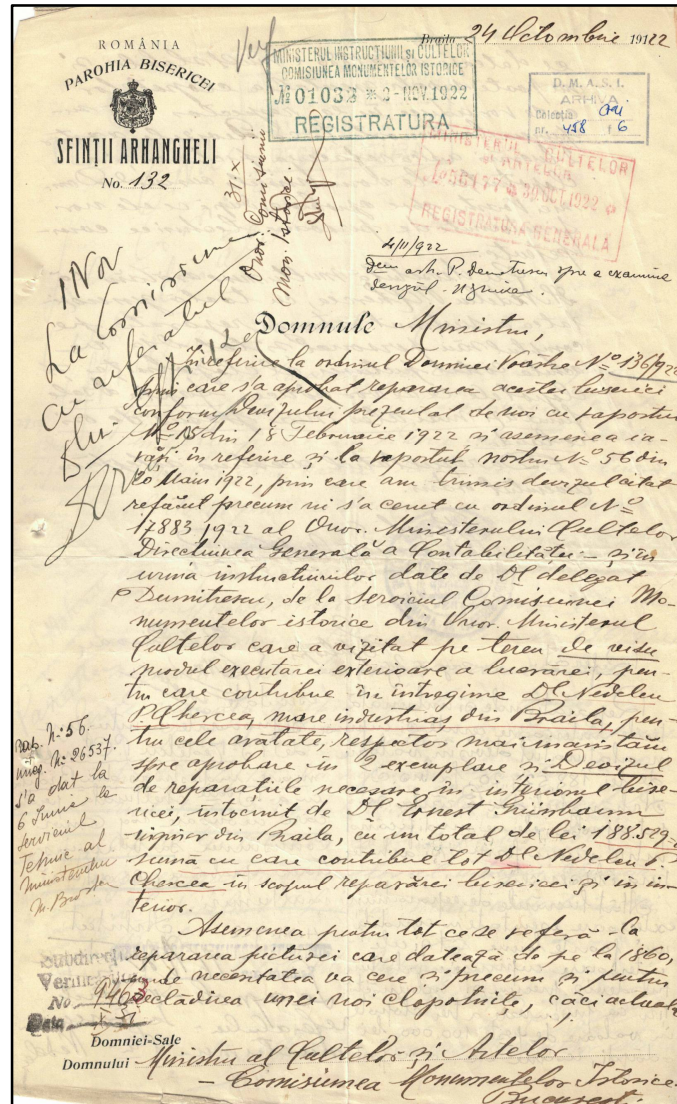 ROMÂNIA
PAROHIA BISERICEI
SFINȚII ARHANGHELI
No. 132
Braila 24 Octombrie 19122
MINISTERUL INSTRUCȚIUNII ȘI CULTELOR
COMISIUNEA MONUMENTELOR ISTORICE
№ 01032 * 2-NOV.1922
REGISTRATURA
D. M. A. S. I.
ARHIVA
Colecția
nr. 458 6
MINISTERUL CULTELOR
ȘI ARTELOR
30 OCT 1922
REGISTRATURA GENERALĂ
31.X
Onor. Comisiunii
Mon. Istorice.
4/11/922
arh. P. Demetrescu spre a examina
1 Nov
La Comisiunea
cu referatul
Domnule Ministru,
În referire la ordinul Domniei Voastre No 136/922
prin care s'a aprobat repararea acestei biserici
conform Devizului prezentat de noi cu raportul
No 15 din 18 Februarie 1922 și asemenea ia-
răși în referire și la raportul nostru No 56 din
20 Maiu 1922, prin care am trimis devizul citat
refăcut precum ni s'a cerut cu ordinul No
17883 1922 al Onor. Ministerului Cultelor
Direcțiunea Generală a Contabilităței – și în
urma instrucțiunilor date de Dl delegat
P Dumitrescu, de la serviciul Comisiunei Mo-
numentelor istorice din Onor. Ministerul
Cultelor care a vizitat pe teren de visu
modul executarei exterioare a lucrărei, pen-
tru care contribue în întregime Dl Nedelcu
P. Chercea, mare industriaș din Braila, pen-
tru cele arătate, respectos mai înaintăm
spre aprobare în 2 exemplare și Devizul
de reparațiile necesare în interiorul bise-
ricei, întocmit de Dl Ernest Grünbaum
inginer din Braila, cu un total de lei 188.529
sumă cu care contribue tot Dl Nedelcu P.
Chercea in scopul reparărei bisericei și in in-
terior.
Asemenea pentru tot ce se referă la
repararea picturei care datează de pe la 1860,
unde necesitatea va cere și precum și pentru
recladirea unei noi clopotnițe, căci actuala
Rap. No. 56.
inreg. No. 26537.
s'a dat la
6 Iunie la
serviciul
Tehnic al
Ministerului
No 9463
Data
Domniei-Sale
Domnului Ministru al Cultelor și Artelor
– Comisiunea Monumentelor Istorice
București.